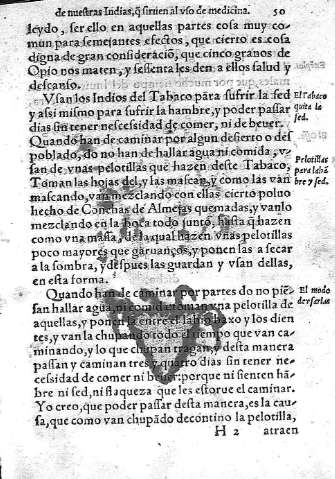 de nuestras Indias, q̃ siruen al vso de medicina. 50
leydo, ser ello en aquellas partes cosa muy co-
mun para semejantes efectos, que cierto es cosa
digna de gran consideraciõ, que cinco granos de
Opio nos maten, y sessenta les den a ellos salud y
descanso.
Vsan los Indios del Tabaco para sufrir la sed
y assi mismo para sufrir la hambre, y poder passar
dias sin tener necessidad de comer, ni de beuer.
Quando han de caminar por algun desierto o des
poblado, do no han de hallar agua ni comida, v-
san de vnas pelotillas que hazen deste Tabaco,
Toman las hojas del, y las mascan, y como las van
mascando, van mezclando con ellas cierto poluo
hecho de Conchas de Almejas quemadas, y vanlo
mezclando en la boca todo junto, hasta q̃ hazen
como vna massa, dela qual hazen vnas pelotillas
poco mayores que garuanços, y ponen las a secar
a la sombra, y despues las guardan y vsan dellas,
en esta forma.
Quando han de caminar por partes do no pie-
san hallar agua, ni comida, toman vna pelotilla de
aquellas, y ponen la entre el labio baxo y los dien
tes, y van la chupando todo el tiempo que van ca-
minando, y lo que chupan tragan, y desta manera
passan y caminan tres y quatro dias sin tener ne-
cessidad de comer ni beuer: porque ni sienten hãm
bre ni sed, ni flaqueza que les estorue el caminar.
Yo creo, que poder passar desta manera, es la cau-
sa, que como van chupãdo decontino la pelotilla,
H 2 atraen
El Tabaco
quita la
sed.
Pelotillas
para la hã
bre y sed.
El modo
de vsarlas